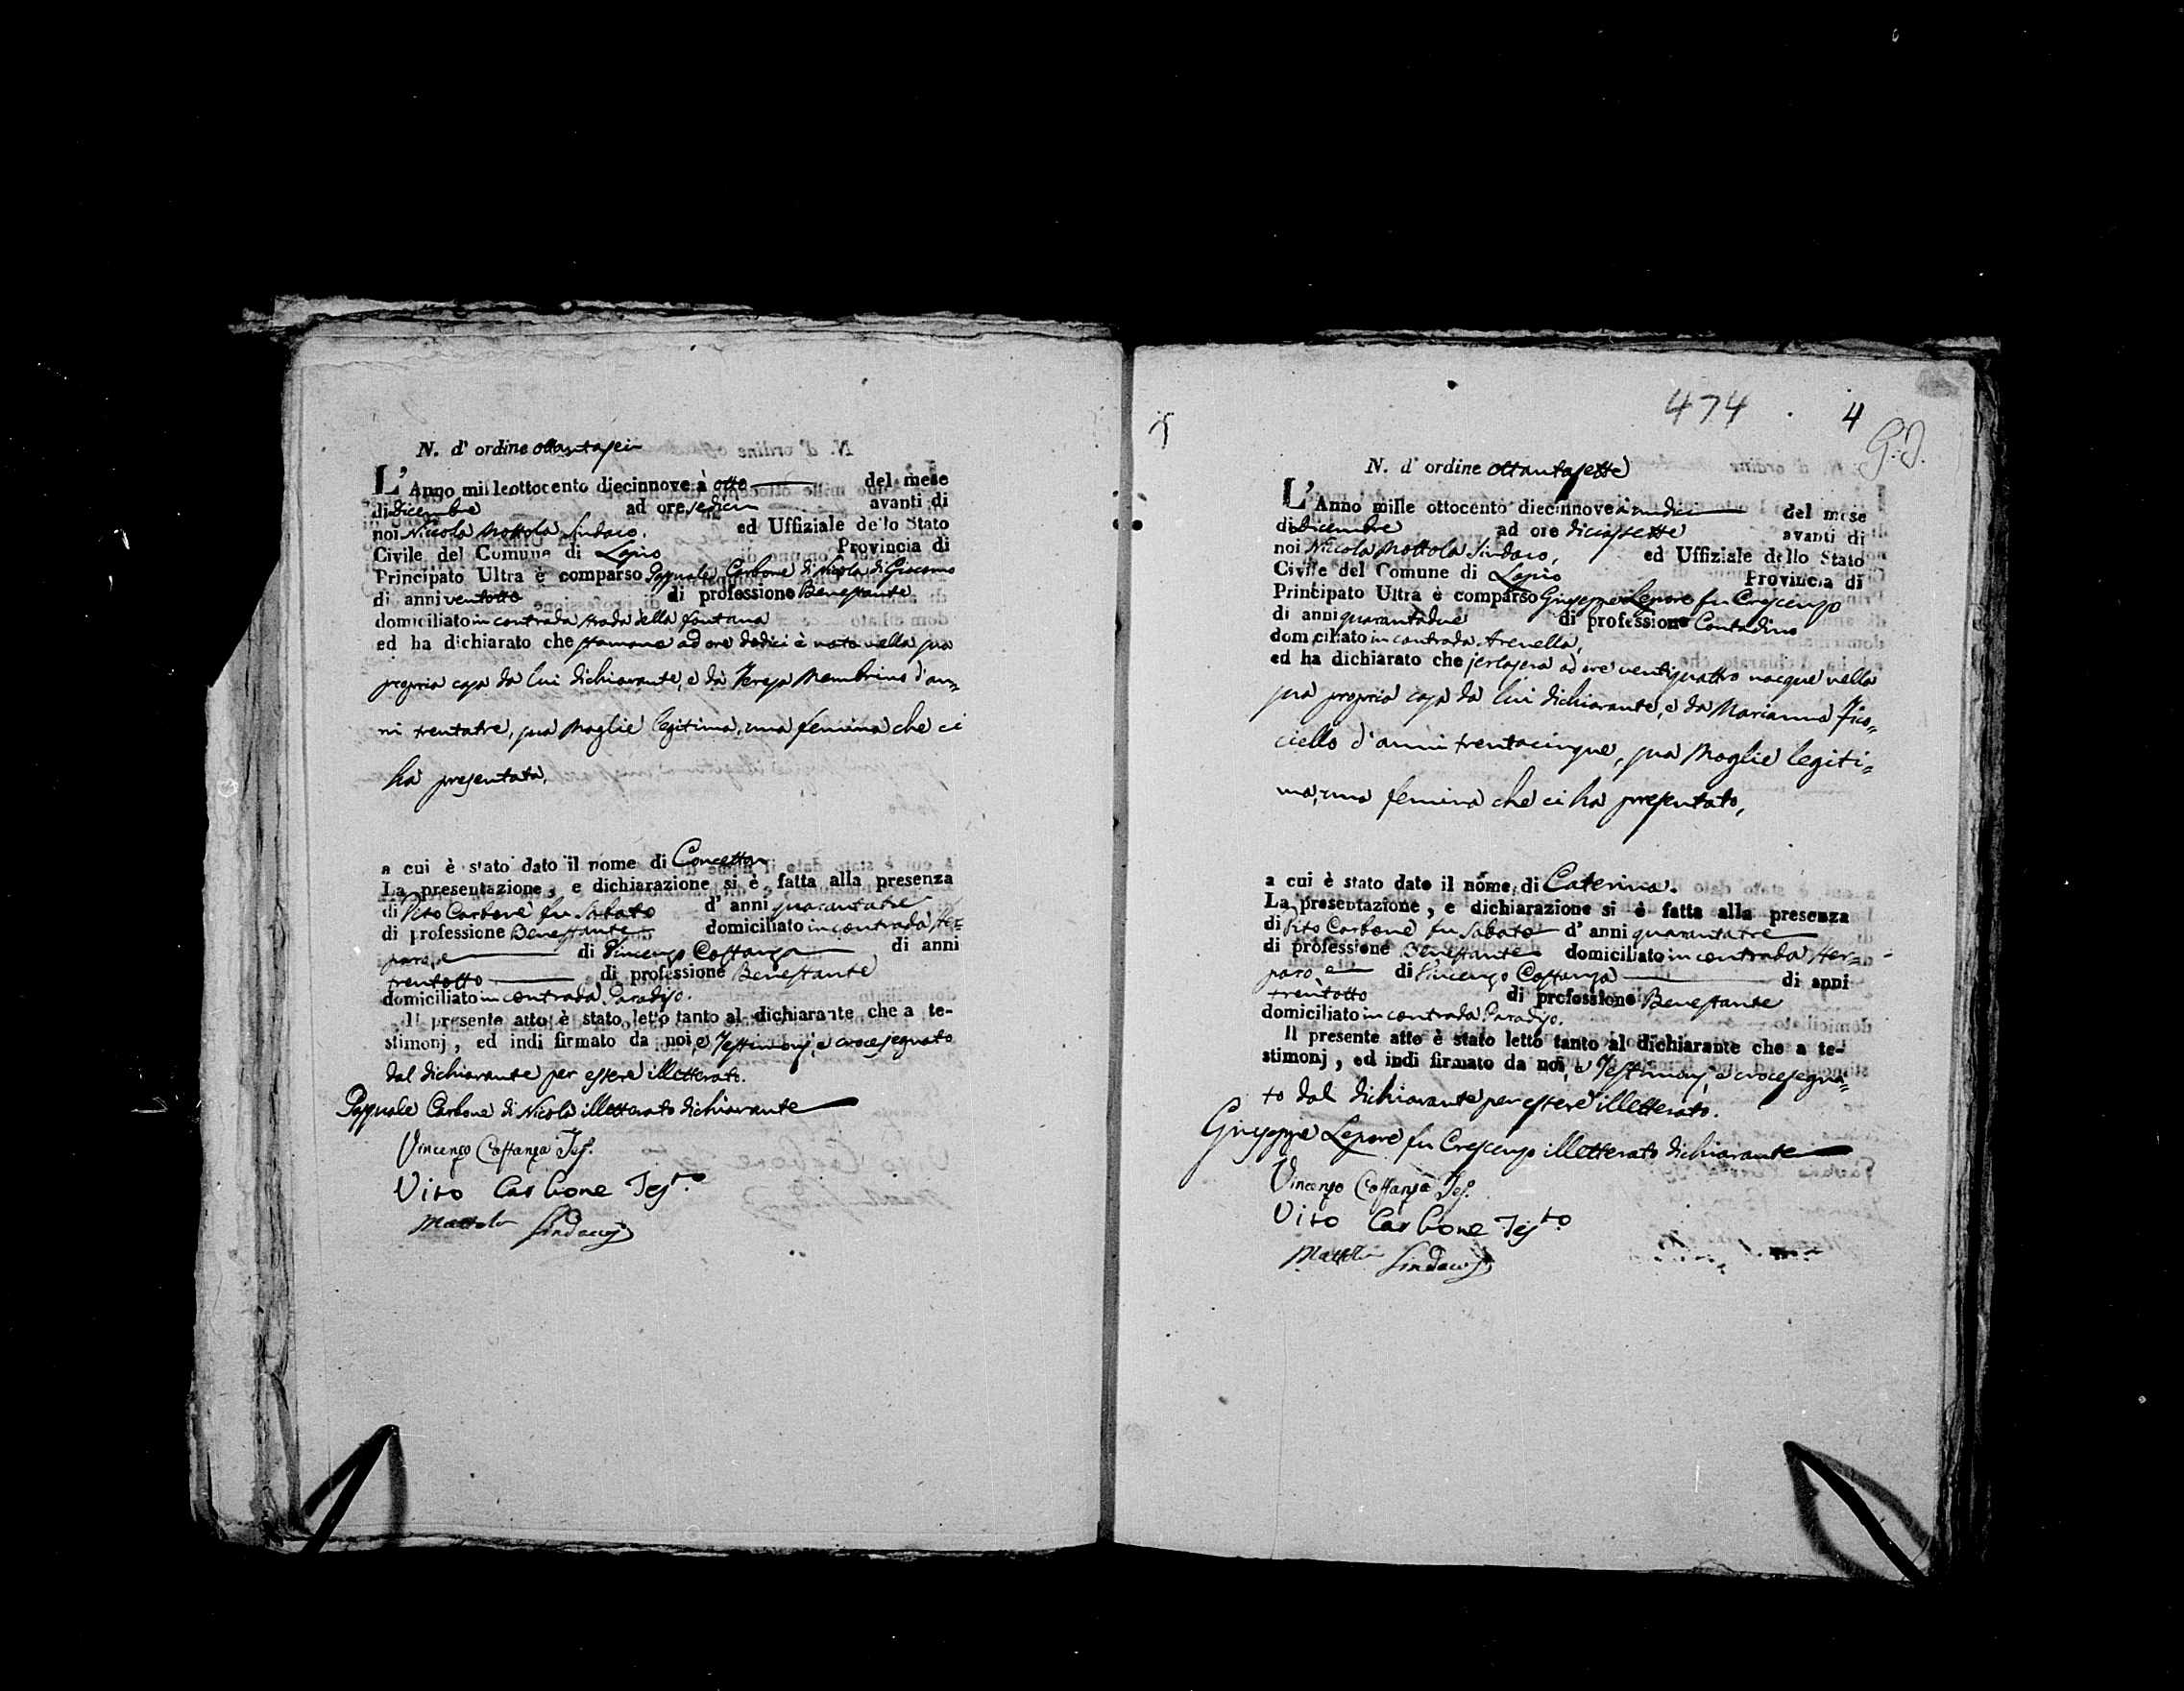 N. d' ordine ottantasei
L' Anno mille ottocento diecinnove à otto del mese
di Dicembre ad ore sedici avanti di
noi Niccola Mottola Sindaco, ed Uffiziale dello Stato
Civile del Comune di Lapio Provincia di
Principato Ultra è comparso Pasquale Carbone di Nicola di Giacomo
di anni ventotto di professione Benestante
domiciliato in contrada strada della fontana
ed ha dichiarato che stamane ad ore dodici è nata nella sua
propria casa da lui dichiarante, e da Teresa Membrino d'an=
ni trentatre, sua Moglie legitima, una femina che ci
ha presentata,
a cui è stato dato il nome di Concetta
La presentazione, e dichiarazione si è fatta alla presenza
di Vito Carbone fu Sabato d' anni quarantatre
di professione Benestante domiciliato in contrada
di Vincenzo Costanza di anni
trentotto di professione Benestante
domiciliato in contrada Paradiso.
Il presente atto è stato letto tanto al dichiarante che a te-
stimonj, ed indi firmato da noi, e Testimonj, e crocesegnato
dal dichiarante per essere illetterato.
Pasquale Carbone di Nicola illetterato dichiarante
Vincenzo Costanza Tes.
Vito Carbone Testo
Mottola Sindaco
474 4
G. J.
N. d' ordine ottantasette
L' Anno mille ottocento diecinnove à undici del mese
di Dicembre ad ore diciassette avanti di
noi Niccola Mottola Sindaco, ed Uffiziale dello Stato
Civile del Comune di Lapio Provincia di
Principato Ultra è comparso Giuseppe Lepore fu Crescenzo
di anni quarantadue di professione Contadino
domiciliato in contrada Arenella,
ed ha dichiarato che jersera ad ore ventiquattro nacque nella
sua propria casa da lui dichiarante, e da Marianna Fico=
ciello d'anni trentacinque, sua Moglie legiti=
ma, una femina che ci ha presentato,
a cui è stato dato il nome di Caterina.
La presentazione, e dichiarazione si è fatta alla presenza
di Vito Carbone fu Sabato d' anni quarantatre
di professione Benestante domiciliato in contrada
di Vincenzo Costanza di anni
trentotto di professione Benestante
domiciliato in contrada Paradiso.
Il presente atto è stato letto tanto al dichiarante che a te-
stimonj, ed indi firmato da noi, e Testimonj, e crocesegna=
to dal dichiarante per essere illetterato.
Giuseppe Lepore fu Crescenzo illetterato dichiarante
Vincenzo Costanza Tes.
Vito Carbone Testo
Mottola Sindaco